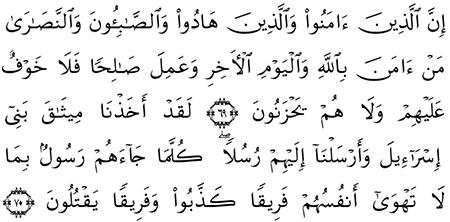 إِنَّ ٱلَّذِينَ ءَامَنُوا۟ وَٱلَّذِينَ هَادُوا۟ وَٱلصَّـٰبِـُٔونَ وَٱلنَّصَـٰرَىٰ
مَنْ ءَامَنَ بِٱللَّهِ وَٱلْيَوْمِ ٱلْـَٔاخِرِ وَعَمِلَ صَـٰلِحًا فَلَا خَوْفٌ
عَلَيْهِمْ وَلَا هُمْ يَحْزَنُونَ ۝٦٩ لَقَدْ أَخَذْنَا مِيثَـٰقَ بَنِىٓ
إِسْرَٰٓءِيلَ وَأَرْسَلْنَآ إِلَيْهِمْ رُسُلًا ۖ كُلَّمَا جَآءَهُمْ رَسُولٌۢ بِمَا
لَا تَهْوَىٰٓ أَنفُسُهُمْ فَرِيقًا كَذَّبُوا۟ وَفَرِيقًا يَقْتُلُونَ ۝٧٠